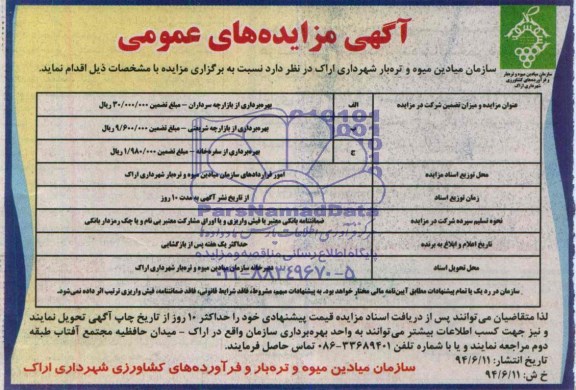 آگهی مزایده‌های عمومی
سازمان میادین میوه و تره‌بار
و فرآورده‌های کشاورزی
شهرداری اراک
سازمان میادین میوه و تره‌بار شهرداری اراک در نظر دارد نسبت به برگزاری مزایده با مشخصات ذیل اقدام نماید.
عنوان مزایده و میزان تضمین شرکت در مزایده
الف بهره‌برداری از بازارچه سرداران – مبلغ تضمین ۳۰/۰۰۰/۰۰۰ ریال
ب بهره‌برداری از بازارچه شریعتی – مبلغ تضمین ۹/۶۰۰/۰۰۰ ریال
ج بهره‌برداری از سفره‌خانه – مبلغ تضمین ۱/۹۸۰/۰۰۰ ریال
محل توزیع اسناد مزایده امور قراردادهای سازمان میادین میوه و تره‌بار شهرداری اراک
زمان توزیع اسناد از تاریخ نشر آگهی به مدت ۱۰ روز
نحوه تسلیم سپرده شرکت در مزایده ضمانتنامه بانکی معتبر یا فیش واریزی و یا اوراق مشارکت معتبر بی نام و یا چک رمزدار بانکی
تاریخ اعلام و ابلاغ به برنده حداکثر یک هفته پس از بازگشایی
محل تحویل اسناد دبیرخانه سازمان میادین میوه و تره‌بار شهرداری اراک
سازمان در رد یک یا تمام پیشنهادات مطابق آیین‌نامه مالی مختار خواهد بود. به پیشنهادات مبهم، مشروط، فاقد شرایط قانونی، فاقد ضمانتنامه، فیش واریزی ترتیب اثر داده نمی‌شود.
ParsNamadData
پایگاه اطلاع رسانی مناقصه و مزایده
۰۲۱-۸۸۳۴۹۶۷۰-۵
لذا متقاضیان می‌توانند پس از دریافت اسناد مزایده قیمت پیشنهادی خود را حداکثر ۱۰ روز از تاریخ چاپ آگهی تحویل نمایند
و نیز جهت کسب اطلاعات بیشتر می‌توانند به واحد بهره‌برداری سازمان واقع در اراک – میدان حافظیه مجتمع آفتاب طبقه
دوم مراجعه نمایند و یا با شماره تلفن ۳۳۶۸۹۴۰۱-۰۸۶ تماس حاصل فرمایند.
تاریخ انتشار: ۹۴/۶/۱۱
خ ش: ۹۴/۶/۱۱
سازمان میادین میوه و تره‌بار و فرآورده‌های کشاورزی شهرداری اراک